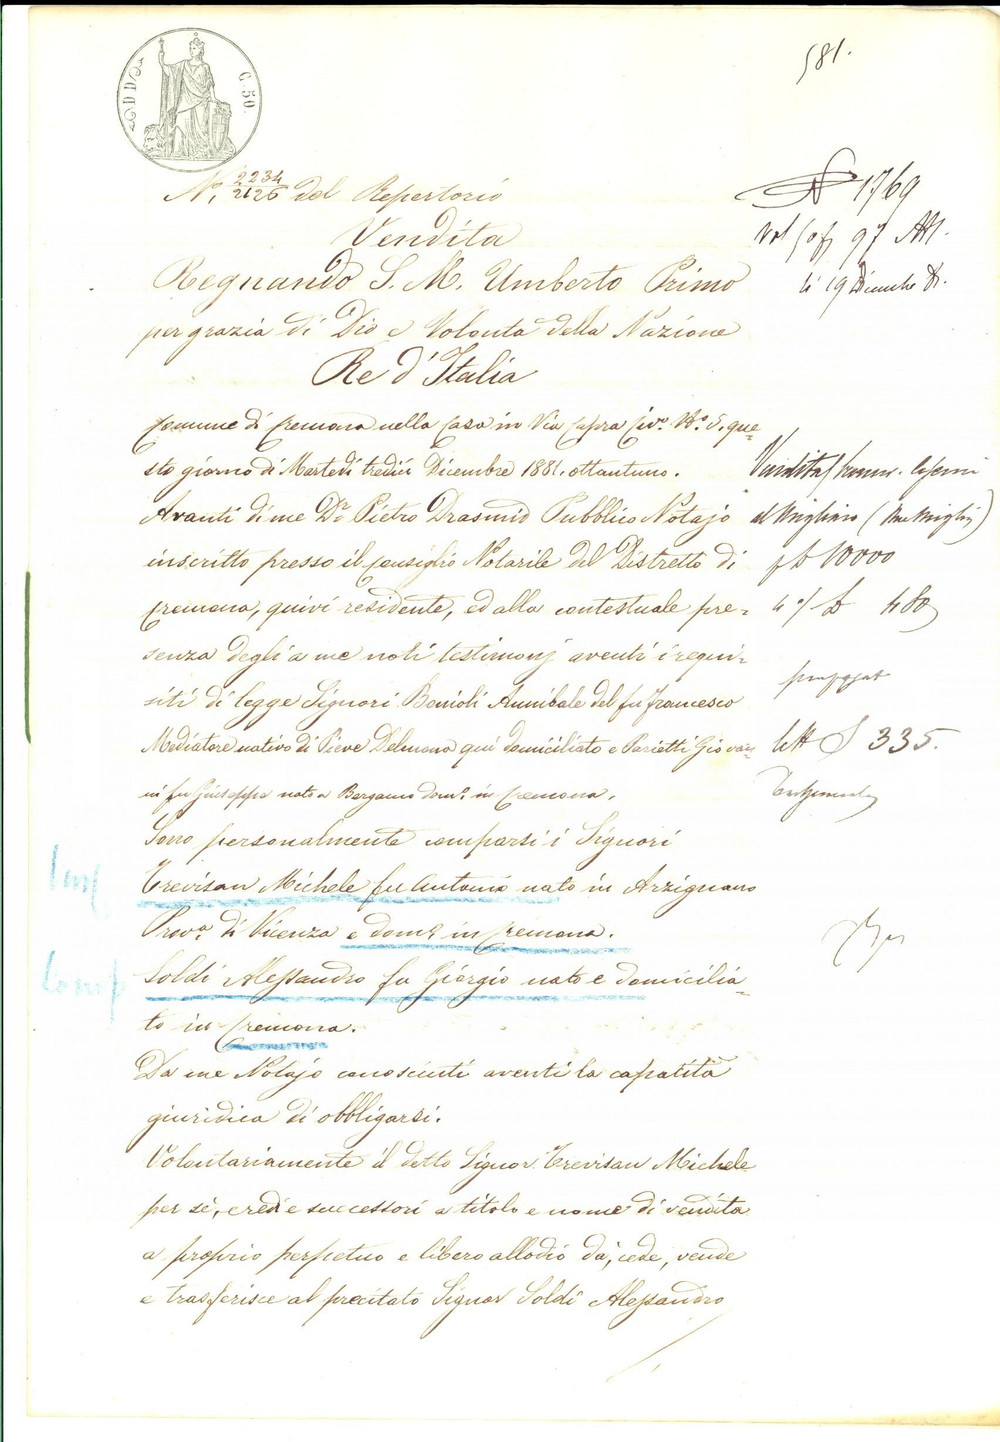 581.
C. 50.
N° 2234/2126 del Repertorio
Vendita
Regnando S. M. Umberto Primo
per grazia di Dio e Volontà della Nazione
Re d'Italia
Comune di Cremona nella Casa in Via Capra Civ.° N.° 5. que-
sto giorno di Martedì tredici Dicembre 1881. ottantuno.
Avanti di me D.r Pietro Drasmid Pubblico Notajo
inscritto presso il Consiglio Notarile del Distretto di
Cremona, quivi residente, ed alla contestuale pre-
senza degli a me noti testimonj aventi i requi-
siti di legge Signori Bonioli Annibale del fu Francesco
Mediatore nativo di Pieve Delmona qui domiciliato e Parietti Giovan-
ni fu Giuseppe nato a Bergamo dom.° in Cremona.
Sono personalmente comparsi i Signori
Trevisan Michele fu Antonio nato in Arzignano
Prov.a di Vicenza e dom.° in Cremona.
Soldi Alessandro fu Giorgio nato e domicilia-
to in Cremona.
Da me Notajo conosciuti aventi la capacità
giuridica di obbligarsi.
Volontariamente il detto Signor Trevisan Michele
per sè, eredi e successori a titolo e nome di vendita
a proprio perpetuo e libero allodio dà, cede, vende
e trasferisce al precitato Signor Soldi Alessandro
N 1769
Vol 50 f 97 AM.
li 19 Dicembre 81.
Vendita
10000
480
335.